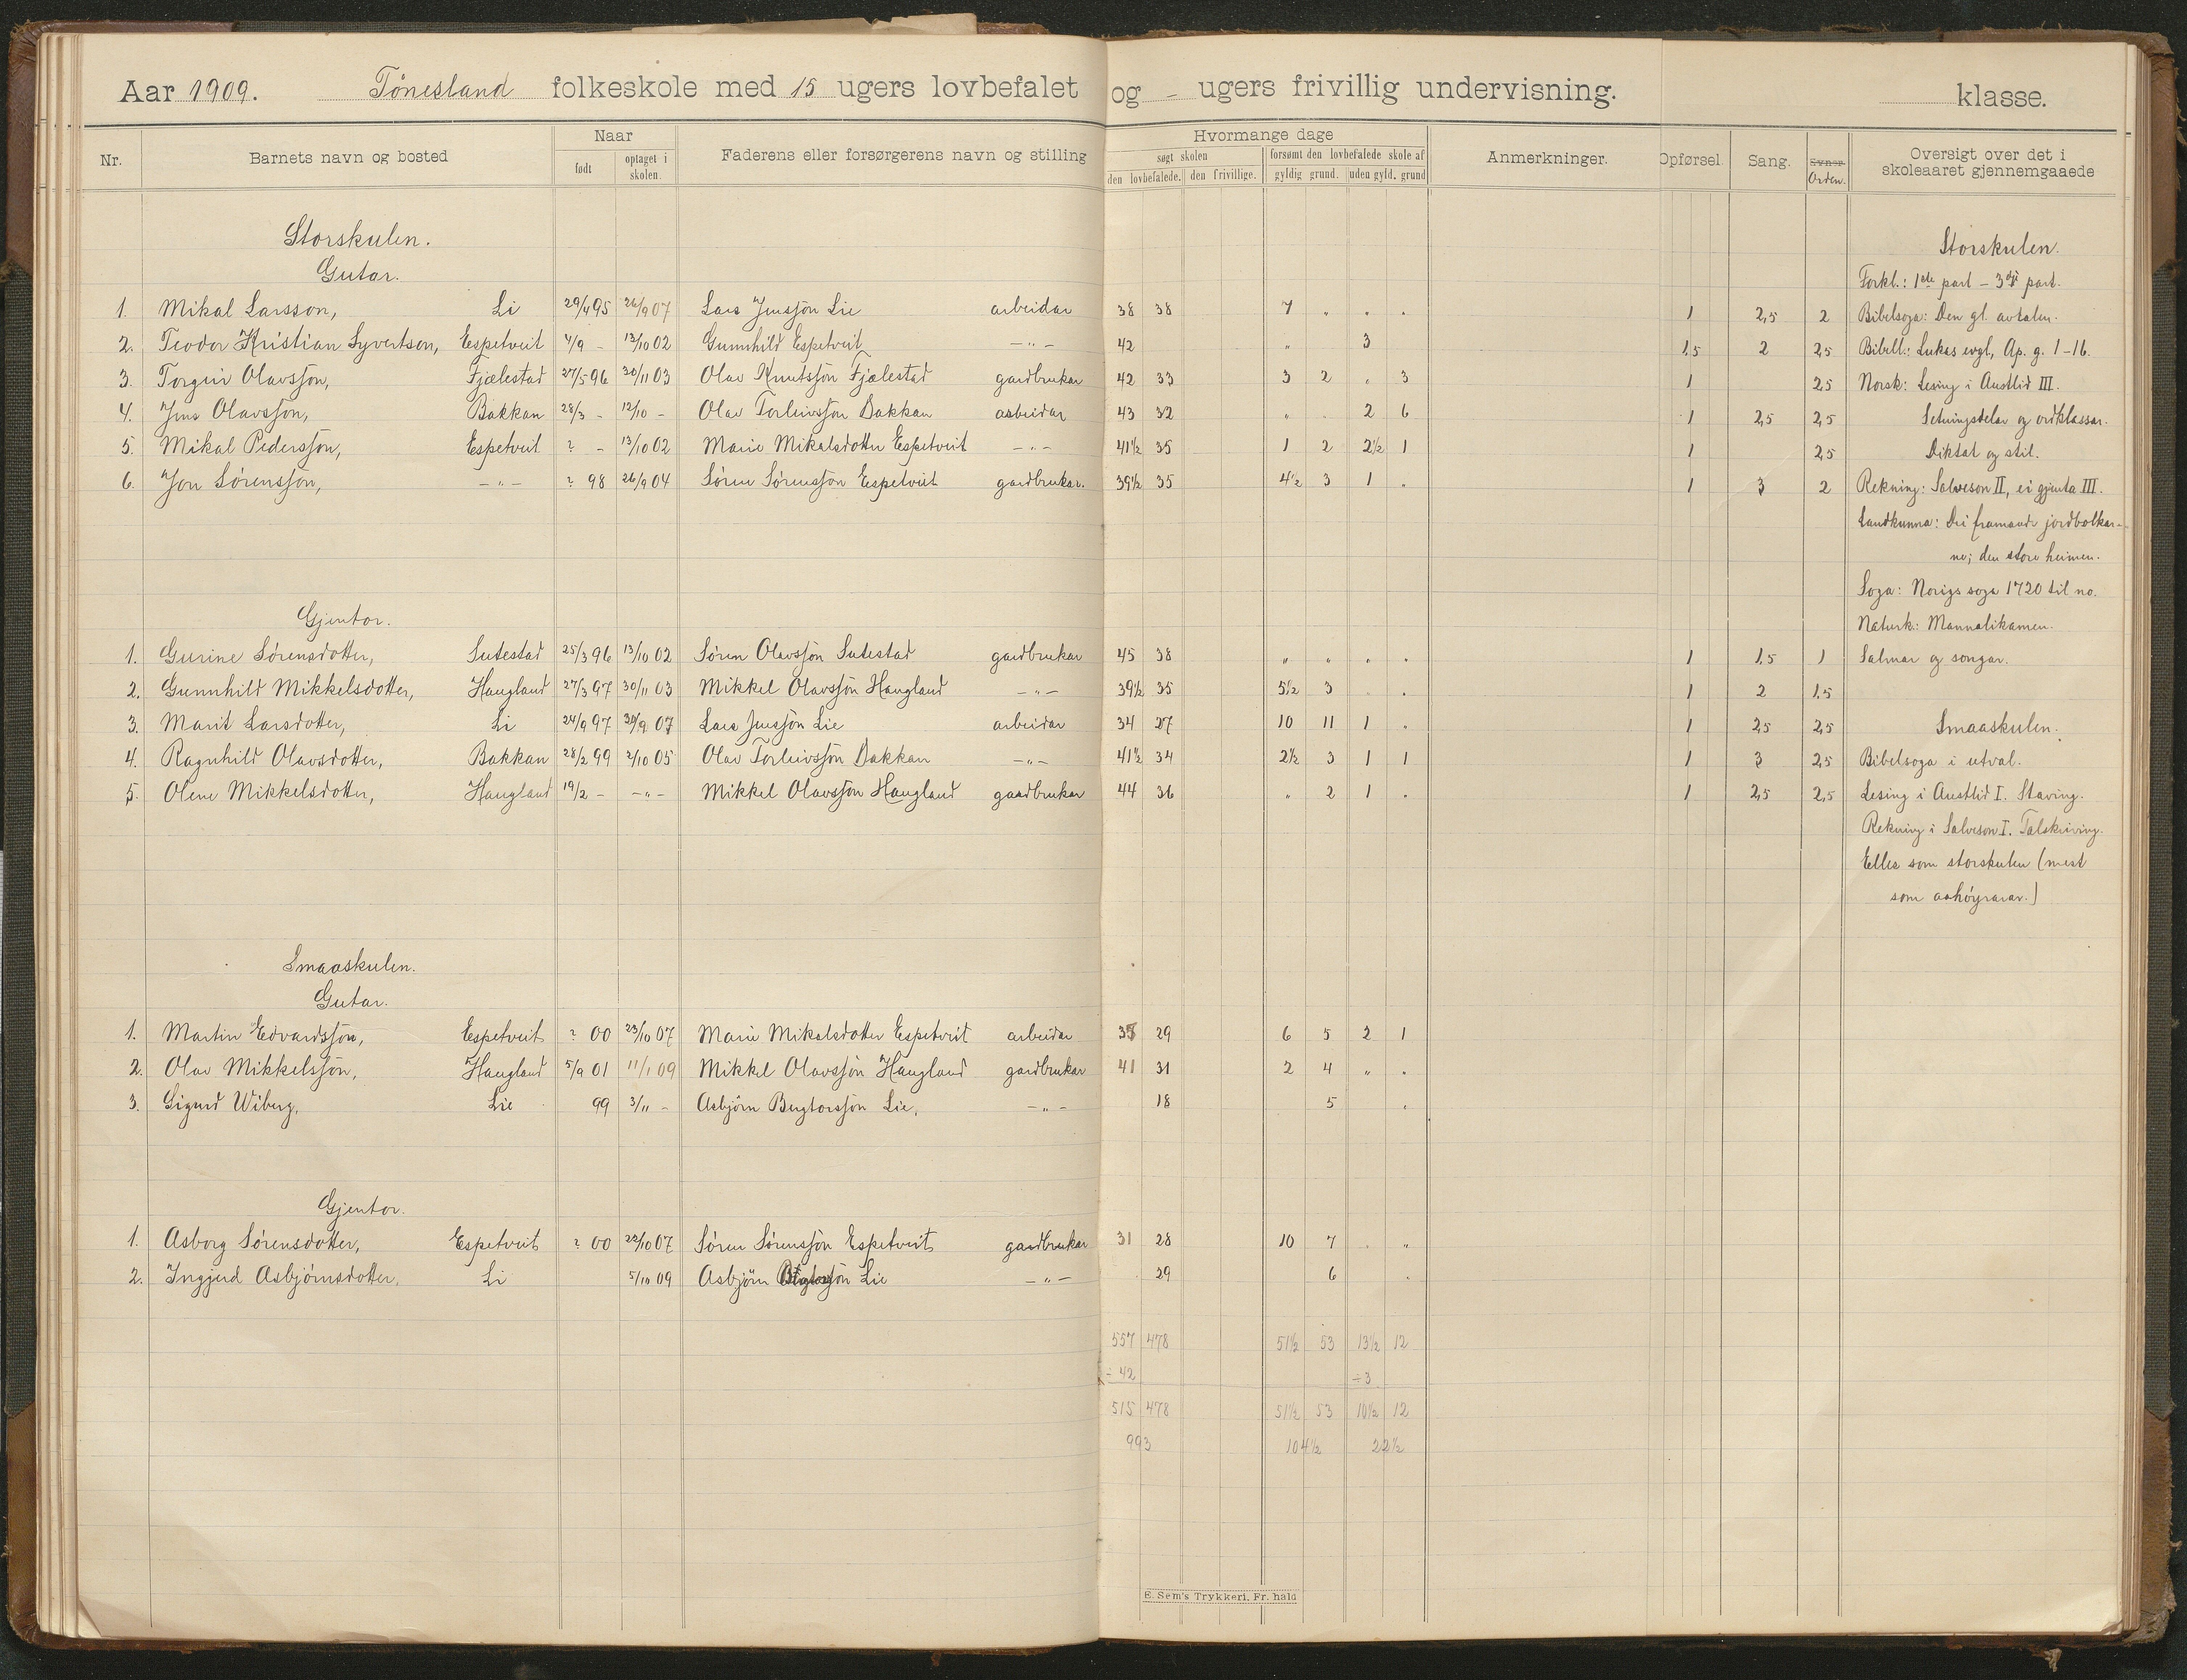 Aar 1909. Tönesland folkeskole med 15 ugers lovbefalet og - ugers frivillig undervisning. klasse.
Nr. Barnets navn og bosted Naar født optaget i skolen. Faderens eller forsørgerens navn og stilling Hvormange dage søgt skolen den lovbefalede. den frivillige. forsømt den lovbefalede skole af gyldig grund. uden gyld. grund Anmerkninger. Opførsel. Sang. Orden. Oversigt over det i skoleaaret gjennemgaaede
Storskulen.
Gutar.
1. Mikal Larsson, Li 29/4 95 26/9 07 Lars Jensson Lie arbeidar 38 38 7 " " " 1 2,5 2
2. Teodor Kristian Syvertsen, Espetveit 4/9 - 13/10 02 Gunnhild Espetveit -"- 42 " 3 1,5 2 2,5
3. Torgeir Olavsson, Fjælestad 27/5 96 30/11 03 Olav Knutsson Fjælestad gardbrukar 42 33 3 2 " 3 1 2,5
4. Jens Olavsson, Bakkan 28/3 - 12/10 - Olav Torleivsson Bakkan arbeidar 43 32 " " 2 6 1 2,5 2,5
5. Mikal Pedersson, Espetveit ? - 13/10 02 Marie Mikalsdotter Espetveit -"- 41½ 35 1 2 2½ 1 1 2,5
6. Jon Sörensson, -"- ? 98 26/9 04 Sören Sörensson Espetveit gardbrukar. 39½ 35 4½ 3 1 " 1 3 2
Gjentor.
1. Gurine Sörensdotter, Sutestad 25/3 96 13/10 02 Sören Olavsson Sutestad gardbrukar 45 38 " " " " 1 1,5 1
2. Gunnhild Mikkelsdotter, Haugland 27/3 97 30/11 03 Mikkel Olavsson Haugland -"- 39½ 35 5½ 3 " " 1 2 1,5
3. Marit Larsdotter, Li 24/9 97 30/9 07 Lars Jensson Lie arbeidar 34 27 10 11 1 " 1 2,5 2,5
4. Ragnhild Olavsdotter, Bakkan 28/2 99 2/10 05 Olav Torleivsson Bakkan -"- 41½ 34 2½ 3 1 1 1 3 2,5
5. Olene Mikkelsdotter, Haugland 19/2 - -"- Mikkel Olavsson Haugland gardbrukar 44 36 " 2 1 " 1 2,5 2,5
Smaaskulen.
Gutar.
1. Martin Edvardsson, Espetveit ? 00 23/10 07 Marie Mikalsdotter Espetveit arbeidar 29 6 5 2 1
2. Olav Mikkelsson, Haugland 5/9 01 11/1 09 Mikkel Olavsson Haugland gardbrukar 41 31 2 4 " "
3. Sigurd Wiberg, Lie 99 3/11 - Asbjörn Bergtorsson Lie, -"- 18 5 "
Gjentor.
1. Asborg Sörensdotter, Espetveit ? 00 23/10 07 Sören Sörensson Espetveit gardbrukar 31 28 10 7 " "
2. Ingjerd Asbjörnsdotter, Li 5/10 09 Asbjörn Bergtorsson Lie -"- 29 6 "
557 478 51½ 53 13½ 12
÷ 42 ÷3
515 478 51½ 53 10½ 12
993 104½ 22½
Storskulen.
Forkl.: 1ste part - 3dje part.
Bibelsoga: Den gl. avtalen.
Bibell.: Lukas evgl, Ap. g. 1-16.
Norsk: Lesing i Austlid III.
Setningsdelar og ordklassar.
Diktat og stil.
Rekning: Salveson II, ei gjenta III.
Landkunna: Dei framande jordbolkar-
ne; den store heimen.
Soga: Norigs soga 1720 til no.
Naturk.: Mannalikamen.
Salmar og songar.
Smaaskulen.
Bibelsoga i utval.
Lesing i Austlid I. Staving.
Rekning i Salveson I. Talskriving.
Elles som storskulen (mest
som aahøyrarar.)
E. Sem's Trykkeri, Fr. hald